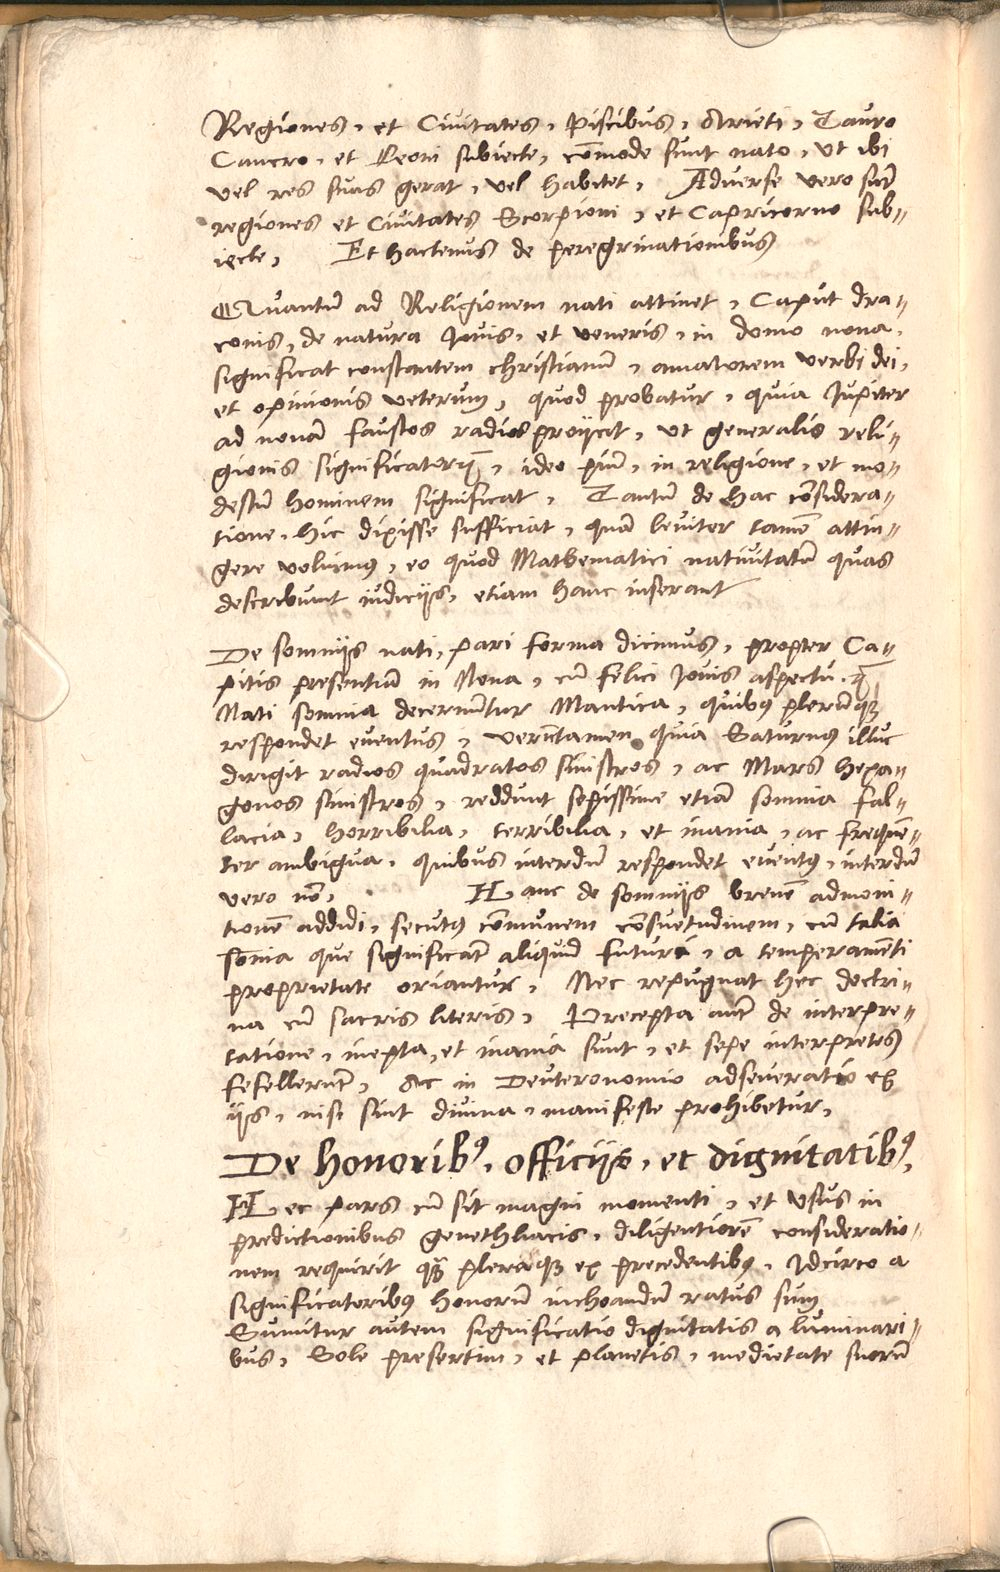 Regiones, et Ciuitates, Piscibus, Arieti, Tauro
Cancro, et Leoni subiecte, com̄ode sunt nato, ut ibi
vel res suas gerat, vel habitet, Aduerse vero sūt
regiones et Ciuitates Scorpioni, et Capricorno sub„
iecte, Et hactenus de peregrinationibus
Quantū ad Religionem nati attinet, Caput dra„
conis, de natura Jouis, et veneris, in domo nona,
significat constantem christianū, amatorem verbi dei,
et opinionis veterum, quod probatur, quia Jupiter
ad nonā faustos radios proijcit, ut generalis reli„
gionis significator, ideo piū, in religione, et mo„
destū hominem significat, Tantū de hac considera„
tione, hic dixisse sufficiat, quā leuiter tamē attin„
gere voluimus, eo quod Mathematici natiuitatū quas
describunt iudicijs, etiam hanc inserant
De somnijs nati, pari forma dicimus, propter Ca„
pitis presentiam in Nona, cū felici Jouis aspectu.
Nati somnia decernuntur Mantica, quibus plerunq̄
respondet euentus, veruntamen quia Saturnus illuc
dirigit radios quadratos sinistros, ac Mars hexa„
gonos sinistros, reddunt sepissime etiā somnia fal„
lacia, horribilia, terribilia, et inania, ac frequē„
ter ambigua, quibus interdū respondet euentus, interdū
vero nō, Hanc de somnijs breuē admoni„
tionē addidi, secutus cōmunem cōsuetudinem, cū talia
somīa que significāt aliquid futuri, a temperamēti
proprietate oriantur, Nec repugnat hec doctri„
na cū sacris literis, Precepta aūt de interpre„
tatione, inepta, et inania sunt, et sepe interpretes
fefellerūt, Ac in Deuteronomio adseueratio ex
ijs, nisi sint diuina, manifeste prohibetur,
De honoribus, officijs, et dignitatibus,
Hec pars cū sit magni momenti, et usus in
predictionibus genethliacis, diligentiorē consideratio„
nem requirit quā pleraq̄ ex precedentibus, Idcirco a
significatoribus honorū inchoandū ratus sum
Sumitur autem significatio dignitatis a luminari„
bus, Sole presertim, et planetis, medietate suorū